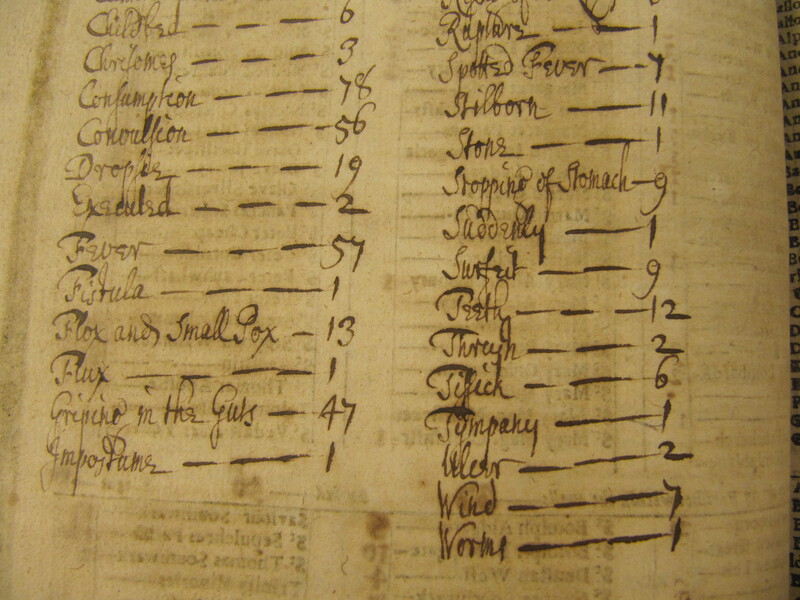 Childbed — — — 6
Chrisomes — — — 3
Consumption — — — 78
Convulsion — — — 56
Dropsie — — — 19
Executed — — — 2
Fever — — — 57
Fistula — — — 1
Flox and Small Pox — 13
Flux — — — 1
Griping in the Guts — 47
Impostume — — — 1
Rupture — — 1
Spotted Fever — 7
Stilborn — — 11
Stone — — 1
Stopping of Stomach — 9
Suddenly — — 1
Surfeit — — 9
Teeth — — — 12
Thrush — — 2
Tissick — — 6
Tympany — — 1
Ulcer — — 2
Wind — — — 7
Worms — — 1